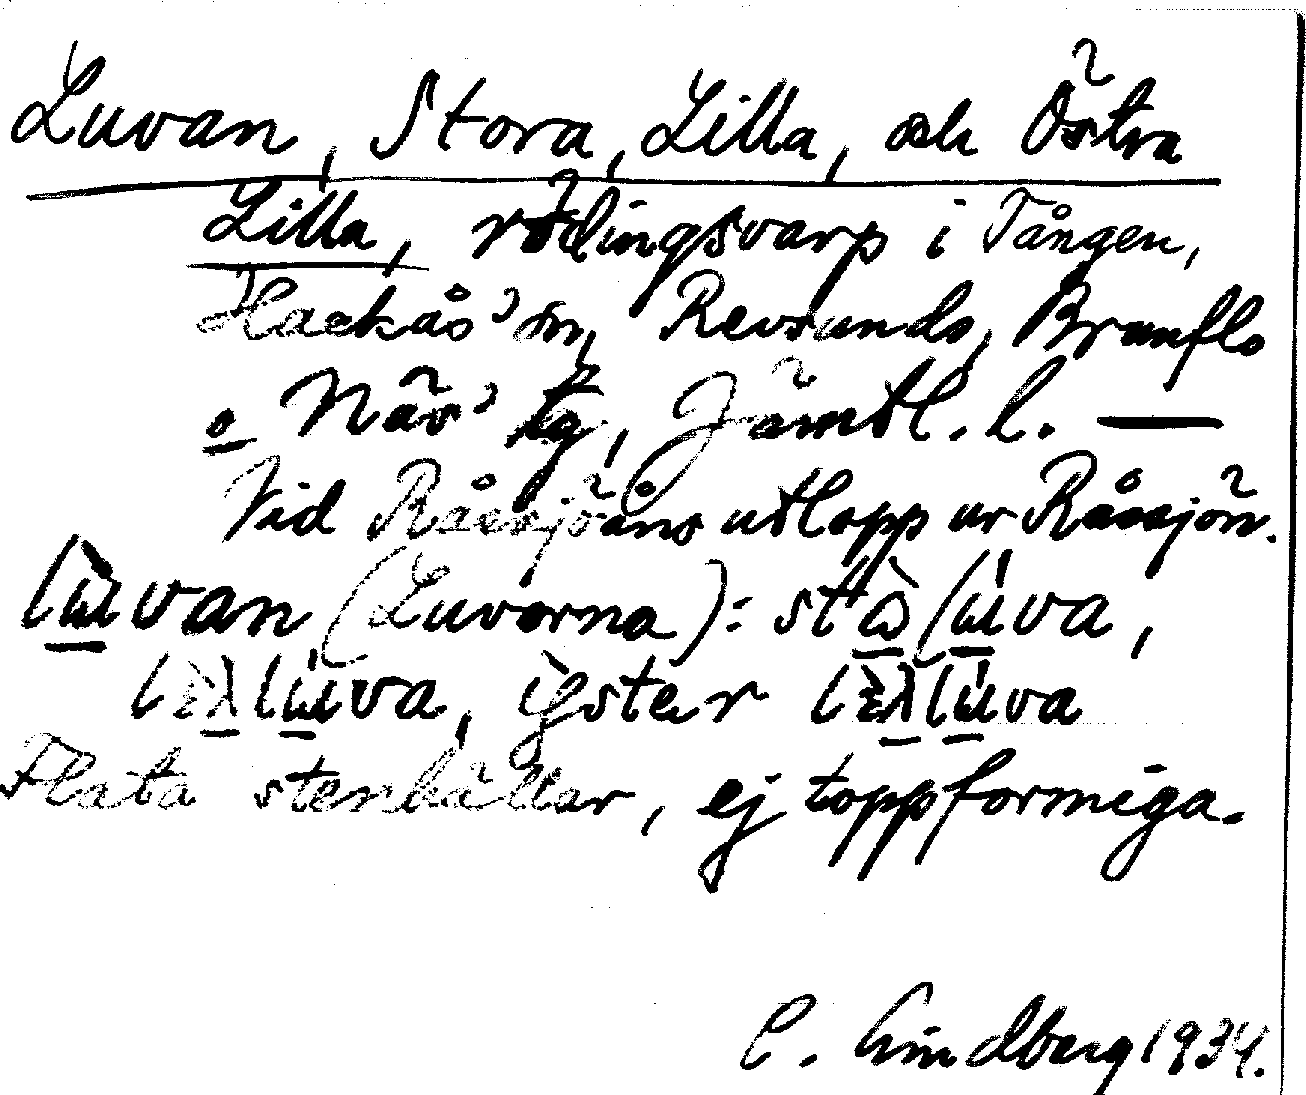 Luvan, Stora, Lilla, och Östra
Lilla, rödingsvarp i Tången,
Hackås' sn, Revsunds, Brunflo
o Näs' tg, Jämtl. l. —
Vid Råssjöåns utlopp ur Råssjön.
lùvan (Luvorna): lúva,
lúva, lúva
Flata stenhällar, ej toppformiga.
C. Lindberg 1934.